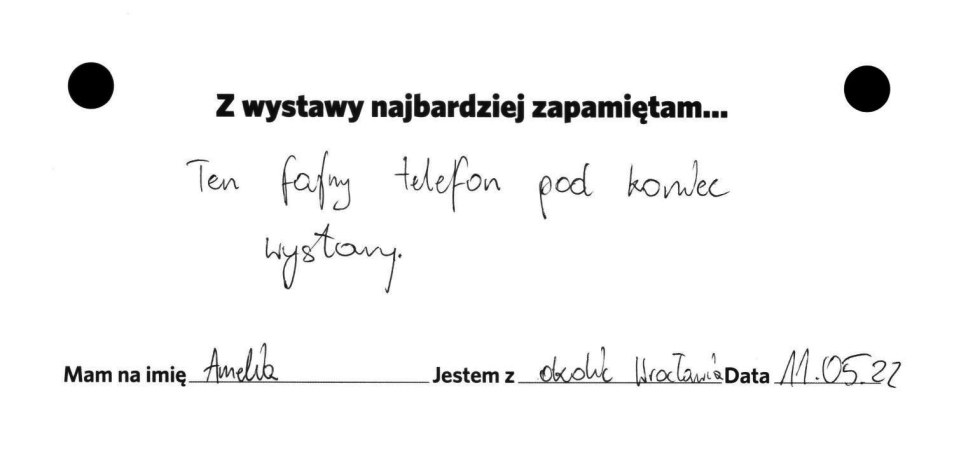 Z wystawy najbardziej zapamiętam...
Ten fajny telefon pod koniec
wystawy.
Mam na imię Amelia Jestem z okolic Wrocławia Data 11.05.22